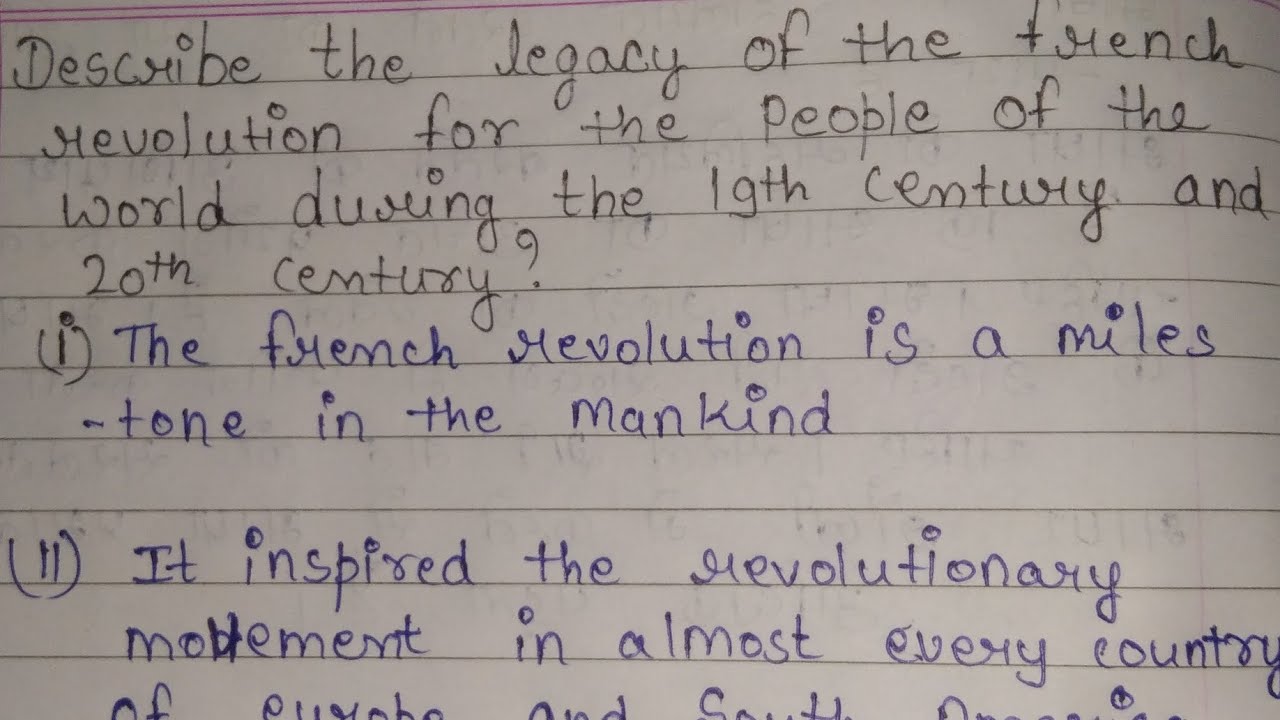 Describe the legacy of the french
revolution for the people of the
world during the 19th century and
20th century?
(i) The french revolution is a miles
-tone in the mankind
(II) It inspired the revolutionary
movement in almost every country
of europe and South America